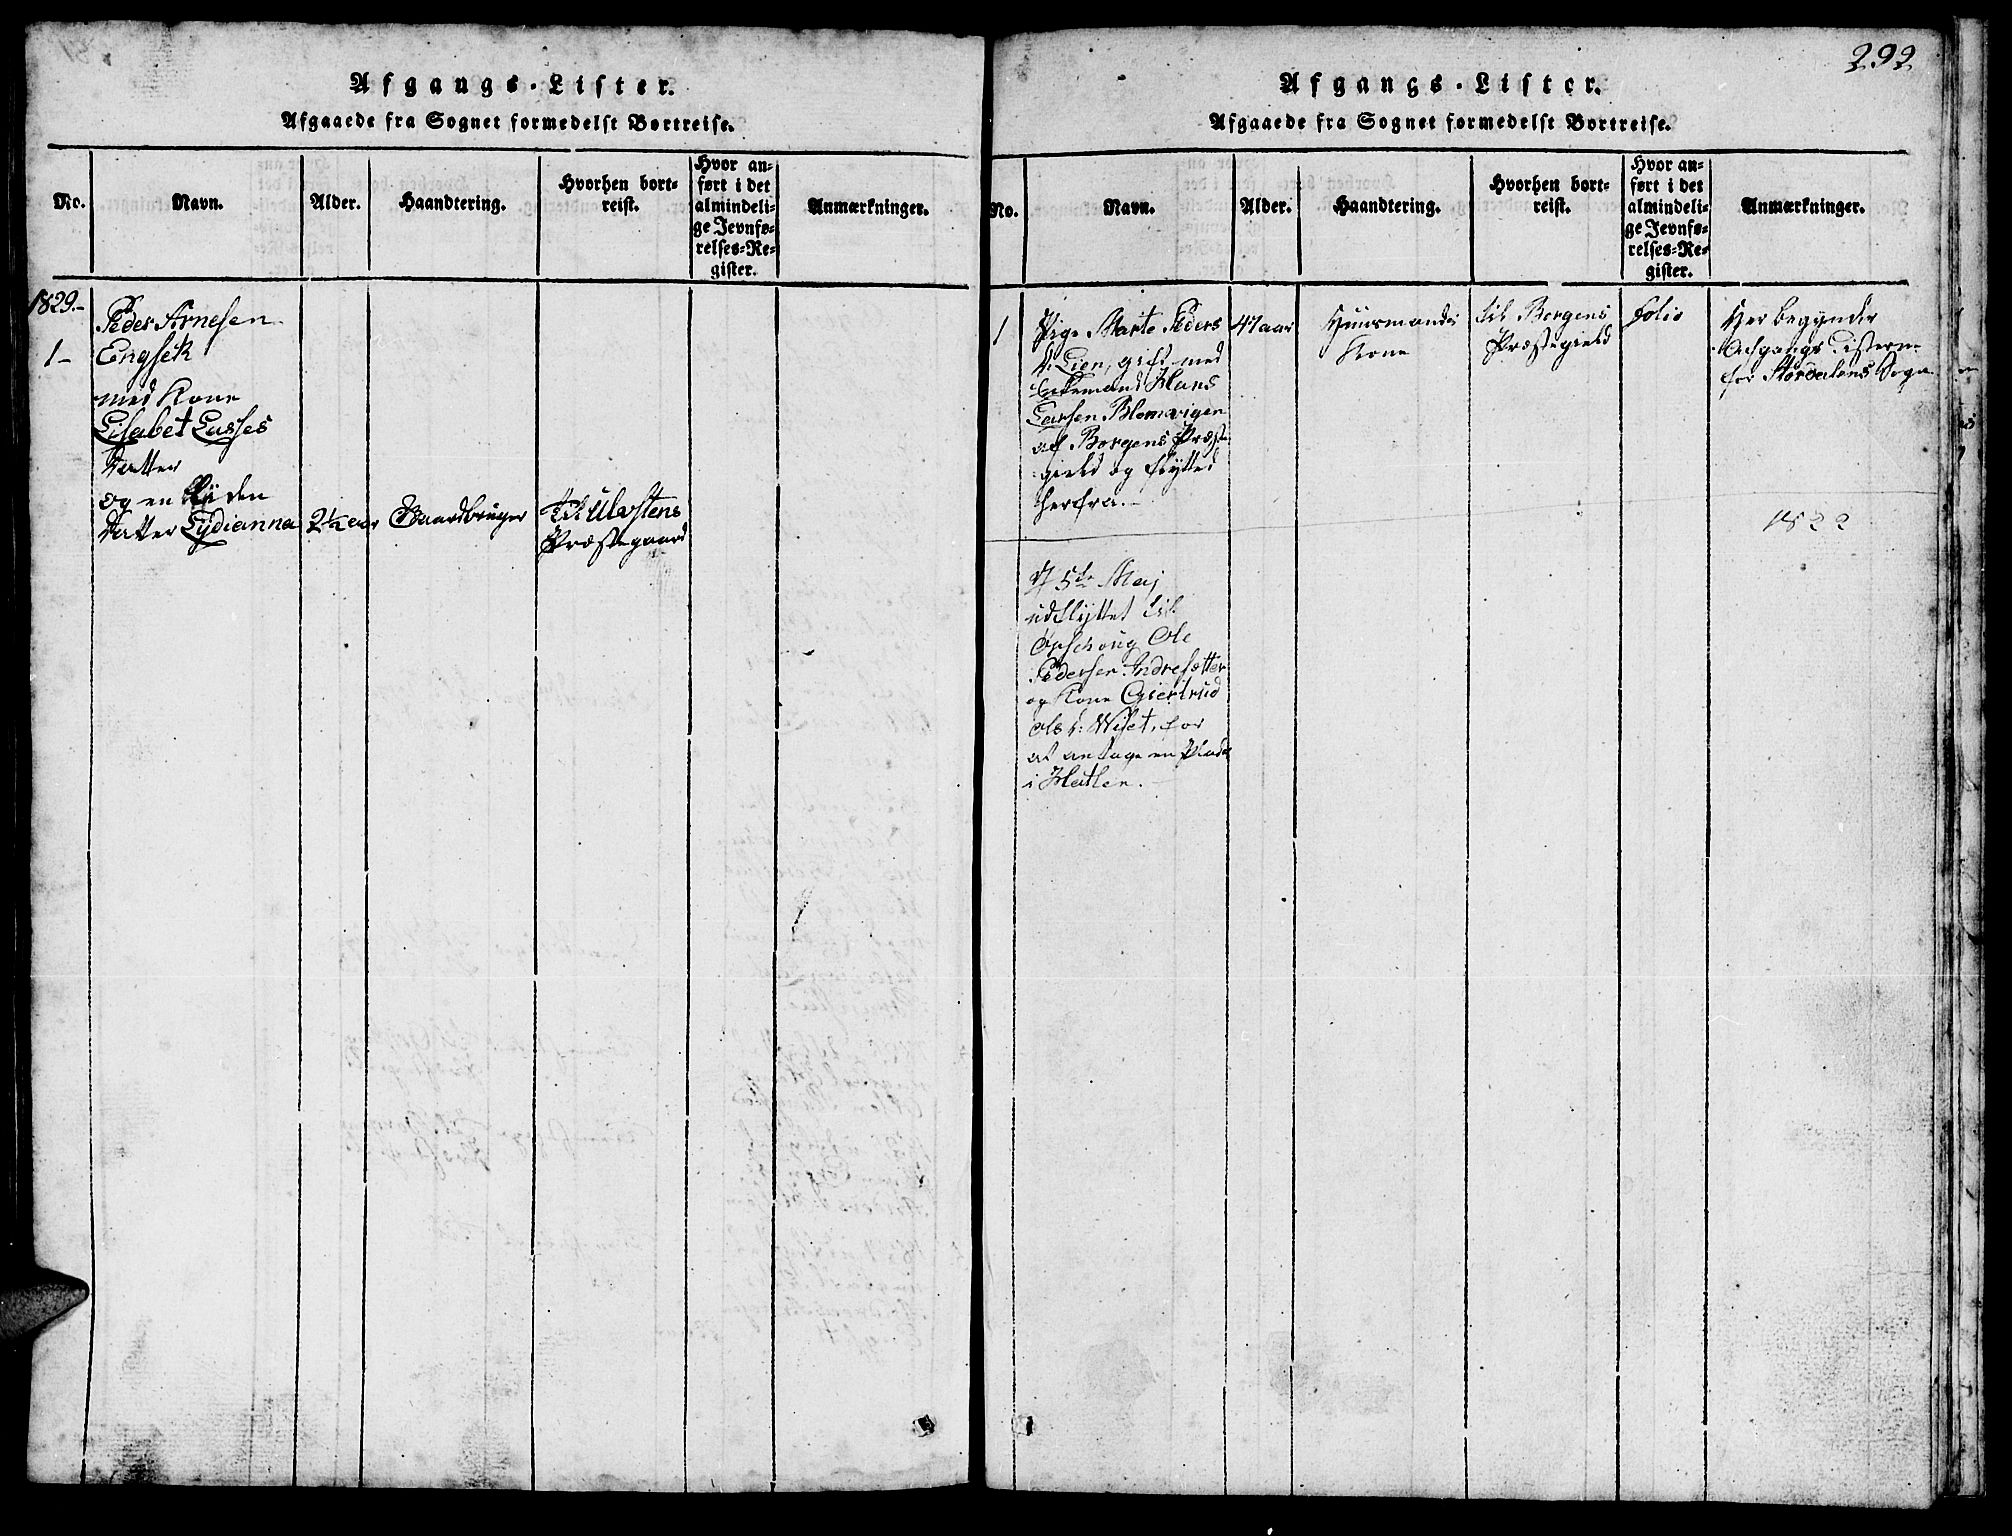 292
Afgangs-Lister.
Afgaaede fra Sognet formedelst Bortreise.
No.
Navn.
Alder.
Haandtering.
Hvorhen bort-
reist.
Hvor an-
ført i det
almindeli-
ge Jevnfø-
relses-Re-
gister.
Anmærkninger.
1829.-
1-
Peder Arnesen
Engset
med Kone
Lisabet Lasses
Datter
og en
Datter Lydianna
2½ aar
Gaardbruger
Til Ulvstens
Præstegaard
Afgangs-Lister.
Afgaaede fra Sognet formedelst Bortreise.
No.
Navn.
Alder.
Haandtering.
Hvorhen bort-
reist.
Hvor an-
ført i det
almindeli-
ge Jevnfø-
relses-Re-
gister.
Anmærkninger.
1
Pige Marte Peders
D: Lien, gift med
Hans
Larsen Blomvigen
af Borgens Præste
gield og flytted
herfra.-
47 aar
Huusmands
Kone
til Borgens
Præstegield
folio
Her begynder
Afgangs Listerne
for Stordalens Sogn
1822
d 5te Maj
udflyttet til
Ørschoug Ole
Pedersen Indresætter
og Kone Giertrud
Ols D: Wiset, for
at antage en Plads
i Hatlen.